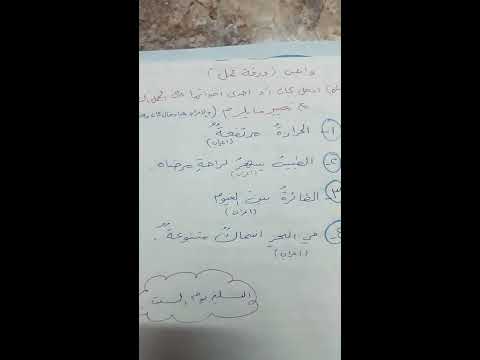 واجب (ورقة عمل)
ادخل كان او احدى اخواتها على الجمل
مع تغيير ما يلزم
١- الحرارةُ مرتفعةٌ
(اعراب)
٢- الطبيبُ يسهرُ لراحةِ مرضاه.
(اعراب)
٣- الطائرةُ بين الغيوم
(اعراب)
٤- في البحرِ اسماكٌ متنوعةٌ.
(اعراب)
التسليم يوم السبت